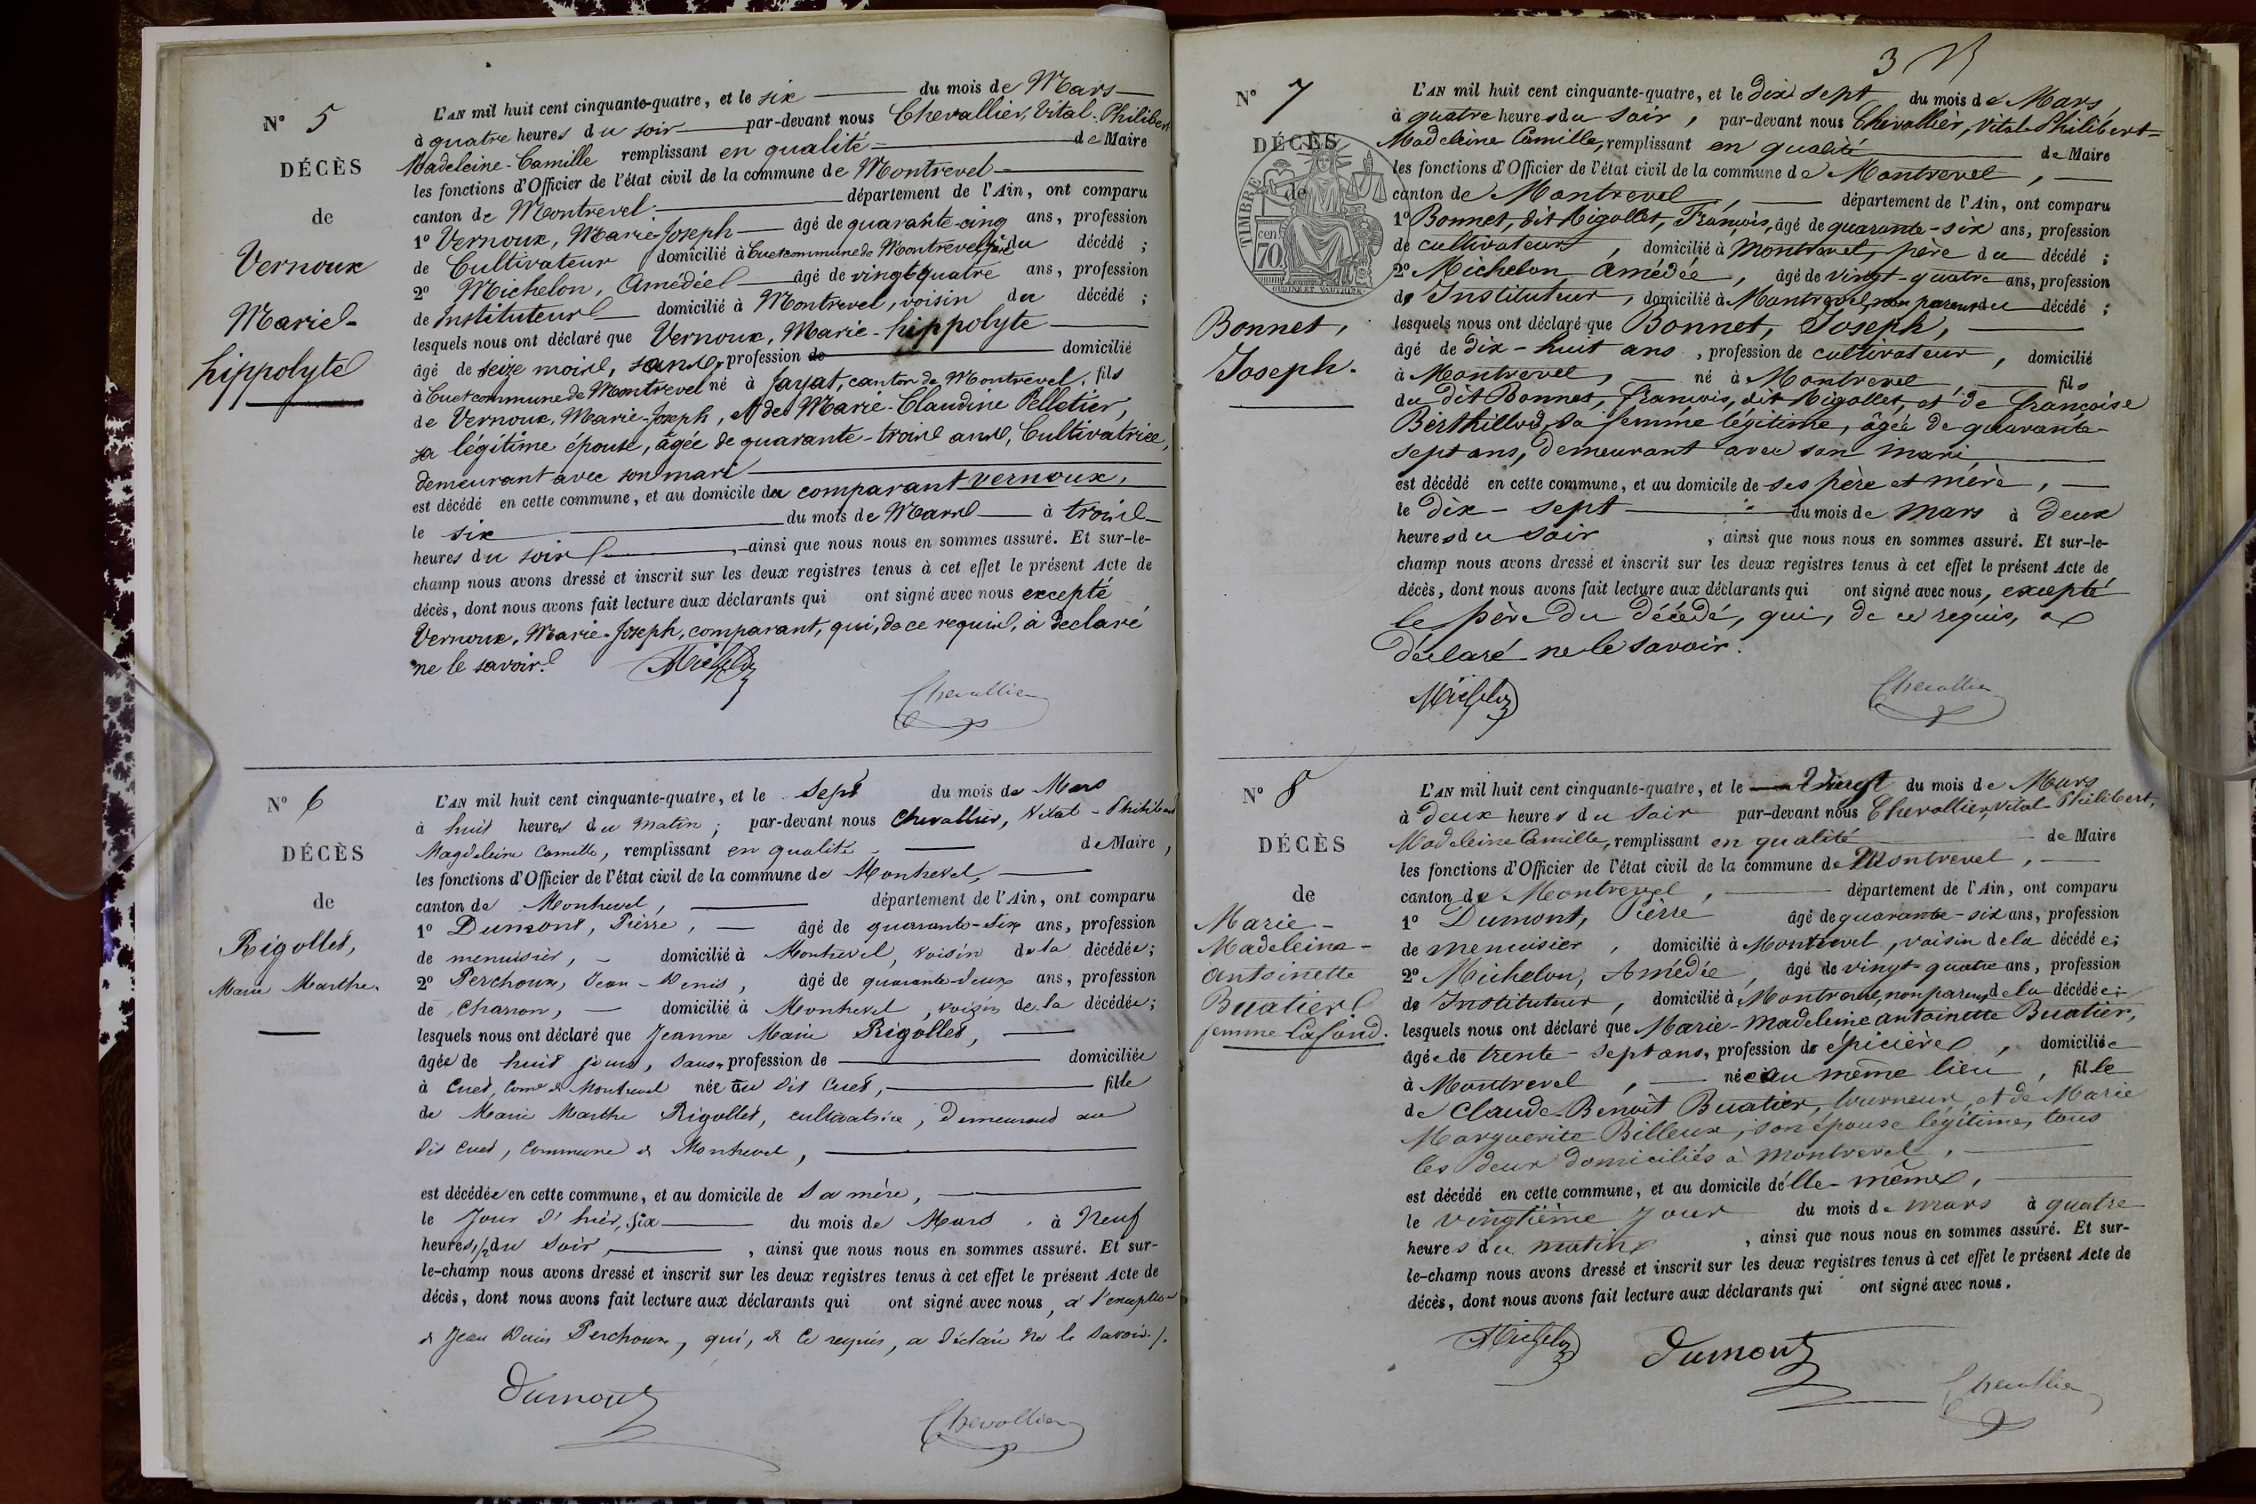 N° 5
DÉCÈS
de
Vernoux
Marie-
hippolyte
L'AN mil huit cent cinquante-quatre, et le six du mois de Mars
à quatre heures du soir par-devant nous Chevallier, Vital-Philibert
Madeleine-Camille remplissant en qualité de Maire
les fonctions d'Officier de l'état civil de la commune de Montrevel
canton de Montrevel département de l'Ain, ont comparu
1° Vernoux, Marie-Joseph âgé de quarante-cinq ans, profession
de Cultivateur domicilié à Cuet commune de Montrevel, père du décédé ;
2° Michelon, Amédée âgé de vingt-quatre ans, profession
de Instituteur domicilié à Montrevel, voisin du décédé ;
lesquels nous ont déclaré que Vernoux, Marie-hippolyte
âgé de seize mois, sans profession de domicilié
à Cuet commune de Montrevel né à Jayat, canton de Montrevel, fils
de Vernoux, Marie-Joseph, et de Marie-Claudine Pelletier,
sa légitime épouse, âgée de quarante-trois ans, Cultivatrice,
demeurant avec son mari
est décédé en cette commune, et au domicile du comparant vernoux,
le six du mois de Mars à trois
heures du soir, ainsi que nous nous en sommes assuré. Et sur-le-
champ nous avons dressé et inscrit sur les deux registres tenus à cet effet le présent Acte de
décès, dont nous avons fait lecture aux déclarants qui ont signé avec nous excepté
Vernoux, Marie-Joseph, comparant, qui, de ce requis, a déclaré
ne le savoir.
Michelon
Chevallier
N° 6
DÉCÈS
de
Rigollet,
Marie Marthe.
L'AN mil huit cent cinquante-quatre, et le sept du mois de Mars
à huit heures du matin ; par-devant nous Chevallier, Vital-Philibert
Magdeleine Camille, remplissant en qualité de Maire,
les fonctions d'Officier de l'état civil de la commune de Montrevel,
canton de Montrevel, département de l'Ain, ont comparu
1° Dumont, Pierre, âgé de quarante-six ans, profession
de menuisier, domicilié à Montrevel, voisin de la décédée ;
2° Perchoux, Jean-Denis, âgé de quarante-deux ans, profession
de charron, domicilié à Montrevel, voisin de la décédée ;
lesquels nous ont déclaré que Jeanne Marie Rigollet,
âgée de huit jours, sans profession de domiciliée
à Cuet, Comne de Montrevel née au dit Cuet, fille
de Marie Marthe Rigollet, cultivatrice, demeurant au
dit Cuet, commune de Montrevel,
est décédée en cette commune, et au domicile de sa mère,
le jour d'hier, six du mois de Mars à Neuf
heures 1/2 du soir, ainsi que nous nous en sommes assuré. Et sur-
le-champ nous avons dressé et inscrit sur les deux registres tenus à cet effet le présent Acte de
décès, dont nous avons fait lecture aux déclarants qui ont signé avec nous, à l'exception
de Jean Denis Perchoux, qui, de ce requis, a déclaré ne le savoir.
Dumont
Chevallier
3
N° 7
DÉCÈS
de
TIMBRE
70
cen
Bonnet,
Joseph.
L'AN mil huit cent cinquante-quatre, et le dix sept du mois de Mars
à quatre heures du soir, par-devant nous Chevallier, Vital-Philibert-
Madeleine Camille, remplissant en qualité de Maire
les fonctions d'Officier de l'état civil de la commune de Montrevel,
canton de Montrevel, département de l'Ain, ont comparu
1° Bonnet, dit Rigollet, François, âgé de quarante-six ans, profession
de cultivateur, domicilié à Montrevel, père du décédé ;
2° Michelon Amédée, âgé de vingt-quatre ans, profession
de Instituteur, domicilié à Montrevel, non parent du décédé ;
lesquels nous ont déclaré que Bonnet, Joseph,
âgé de dix-huit ans, profession de cultivateur, domicilié
à Montrevel, né à Montrevel, fils
du dit Bonnet, François, dit Rigollet, et de Françoise
Berthillod, sa femme légitime, âgée de quarante-
sept ans, demeurant avec son mari,
est décédé en cette commune, et au domicile de ses père et mère,
le dix-sept du mois de mars à deux
heures du soir, ainsi que nous nous en sommes assuré. Et sur-le-
champ nous avons dressé et inscrit sur les deux registres tenus à cet effet le présent Acte de
décès, dont nous avons fait lecture aux déclarants qui ont signé avec nous, excepté
le père du décédé, qui, de ce requis, a
déclaré ne le savoir.
Michelon
Chevallier
N° 8
DÉCÈS
de
Marie-
Madeleine-
antoinette
Buatier
femme Lafond.
L'AN mil huit cent cinquante-quatre, et le vingt du mois de Mars
à deux heures du soir par-devant nous Chevallier, Vital-Philibert,
Madeleine Camille, remplissant en qualité de Maire
les fonctions d'Officier de l'état civil de la commune de Montrevel,
canton de Montrevel, département de l'Ain, ont comparu
1° Dumont, Pierre âgé de quarante-six ans, profession
de menuisier, domicilié à Montrevel, voisin de la décédée ;
2° Michelon, Amédée, âgé de vingt-quatre ans, profession
de Instituteur, domicilié à Montrevel, non parent de la décédée ;
lesquels nous ont déclaré que Marie-Madeleine antoinette Buatier,
âgée de trente-sept ans, profession de épicière, domiciliée
à Montrevel, née au même lieu, fille
de Claude-Benoît Buatier, tourneur, et de Marie
Marguerite Billoux, son épouse légitime, tous
les deux domiciliés à Montrevel,
est décédé en cette commune, et au domicile d'elle-même,
le vingtième jour du mois de mars à quatre
heures du matin, ainsi que nous nous en sommes assuré. Et sur-
le-champ nous avons dressé et inscrit sur les deux registres tenus à cet effet le présent Acte de
décès, dont nous avons fait lecture aux déclarants qui ont signé avec nous.
Michelon
Dumont
Chevallier